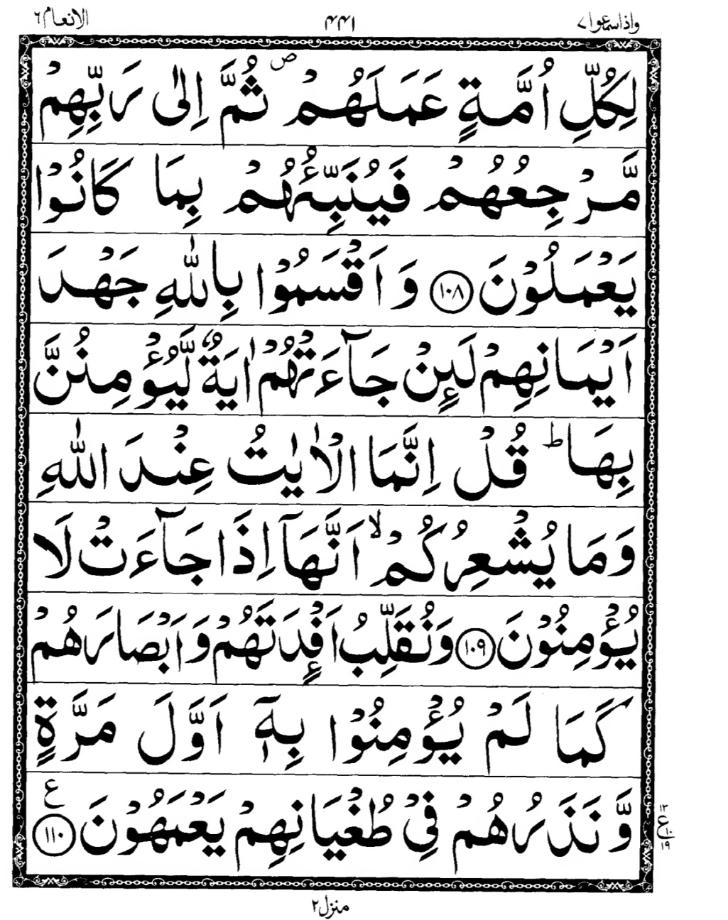 واذاسمعوا٧ ۴۴۱ الانعام٦
لِكُلِّ اُمَّةٍ عَمَلَهُمْ ۖ ثُمَّ اِلٰى رَبِّهِمْ
مَّرْجِعُهُمْ فَيُنَبِّئُهُمْ بِمَا كَانُوْا
يَعْمَلُوْنَ ﴿١٠٨﴾ وَاَقْسَمُوْا بِاللّٰهِ جَهْدَ
اَيْمَانِهِمْ لَئِنْ جَآءَتْهُمْ اٰيَةٌ لَّيُؤْمِنُنَّ
بِهَا ؕ قُلْ اِنَّمَا الْاٰيٰتُ عِنْدَ اللّٰهِ
وَمَا يُشْعِرُكُمْ ۙ اَنَّهَآ اِذَا جَآءَتْ لَا
يُؤْمِنُوْنَ ﴿١٠٩﴾ وَنُقَلِّبُ اَفْـِٕدَتَهُمْ وَاَبْصَارَهُمْ
كَمَا لَمْ يُؤْمِنُوْا بِهٖٓ اَوَّلَ مَرَّةٍ
وَّنَذَرُهُمْ فِيْ طُغْيَانِهِمْ يَعْمَهُوْنَ ﴿١١٠﴾ ع
١٣
ع ١٠
١٩
منزل٢